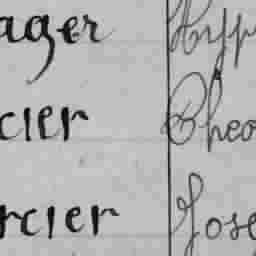 ager Hipp
cier Theo
rcier Jose